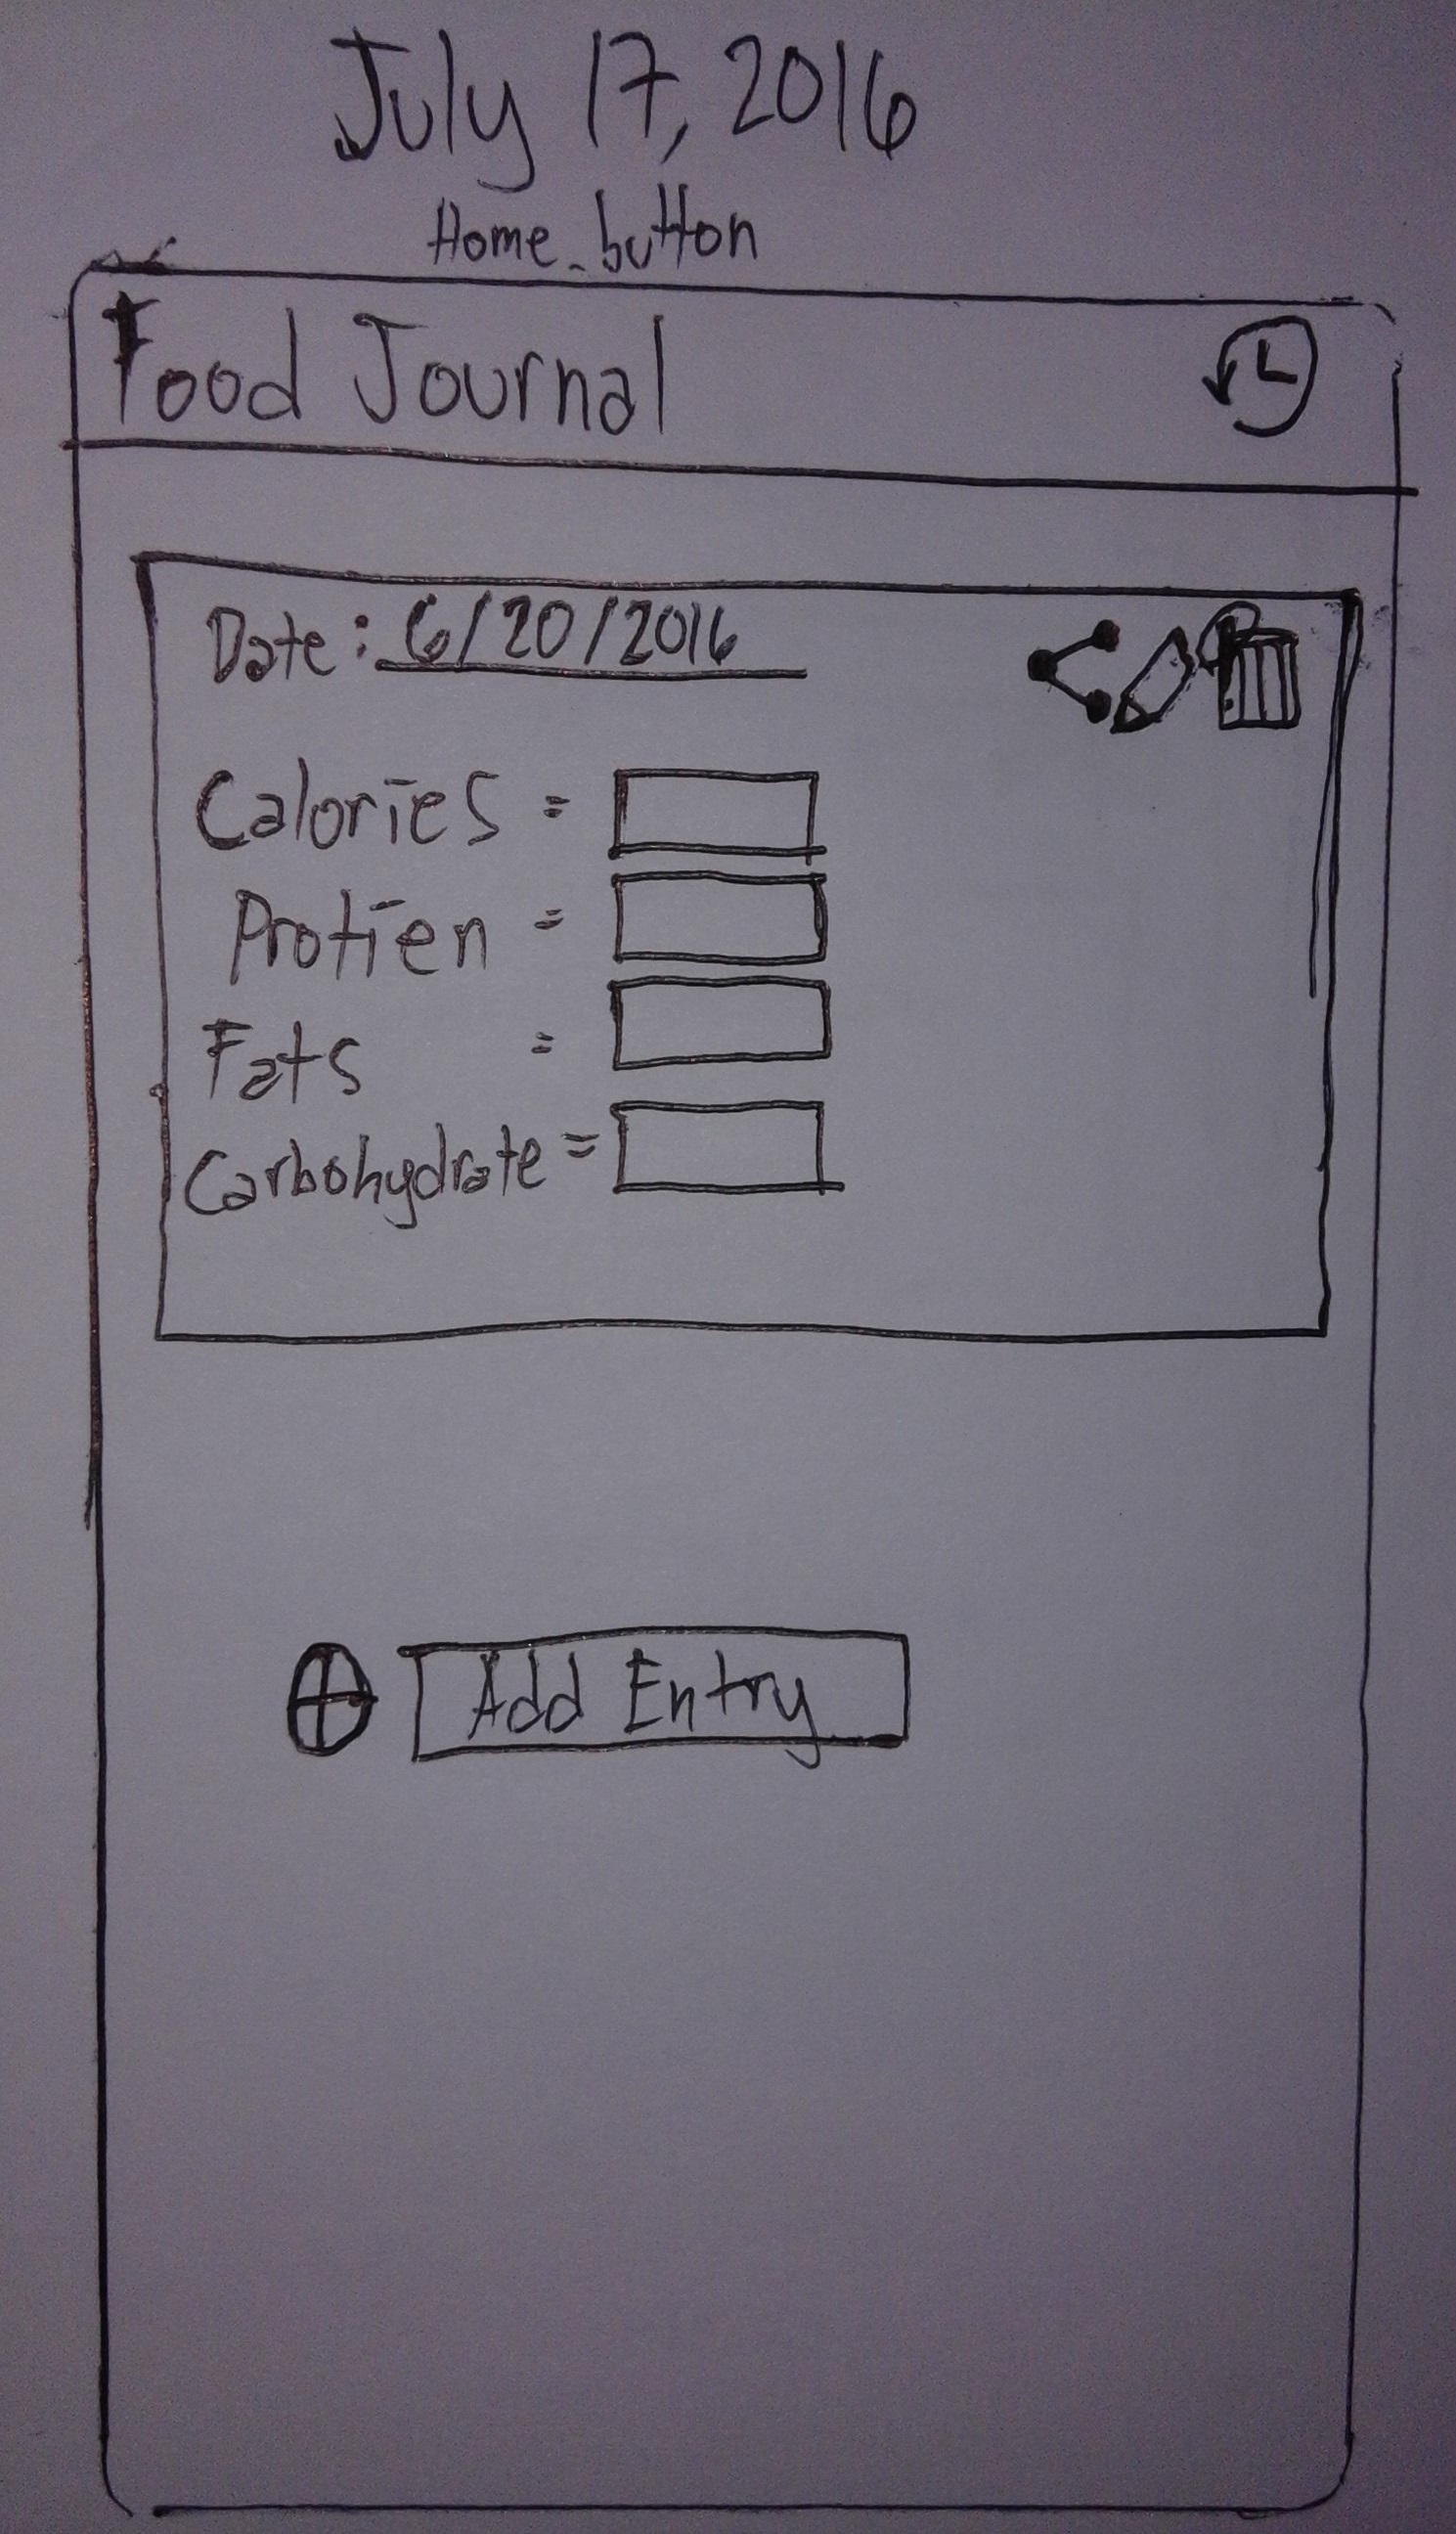 July 17, 2016
Home button
Food Journal
Date: 6/20/2016
Calories =
Protien =
Fats =
Carbohydrate =
Add Entry